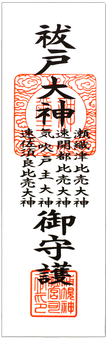 祓戸大神
瀬織津比売大神
速開都比売大神
気吹戸主大神
速佐須良比売大神
御守護